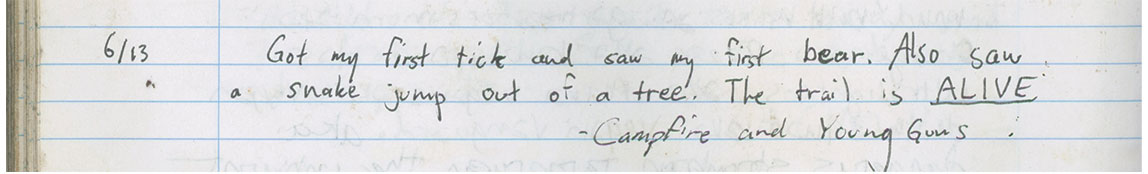 6/13 Got my first tick and saw my first bear. Also saw
a snake jump out of a tree. The trail is ALIVE
-Campfire and Young Guns